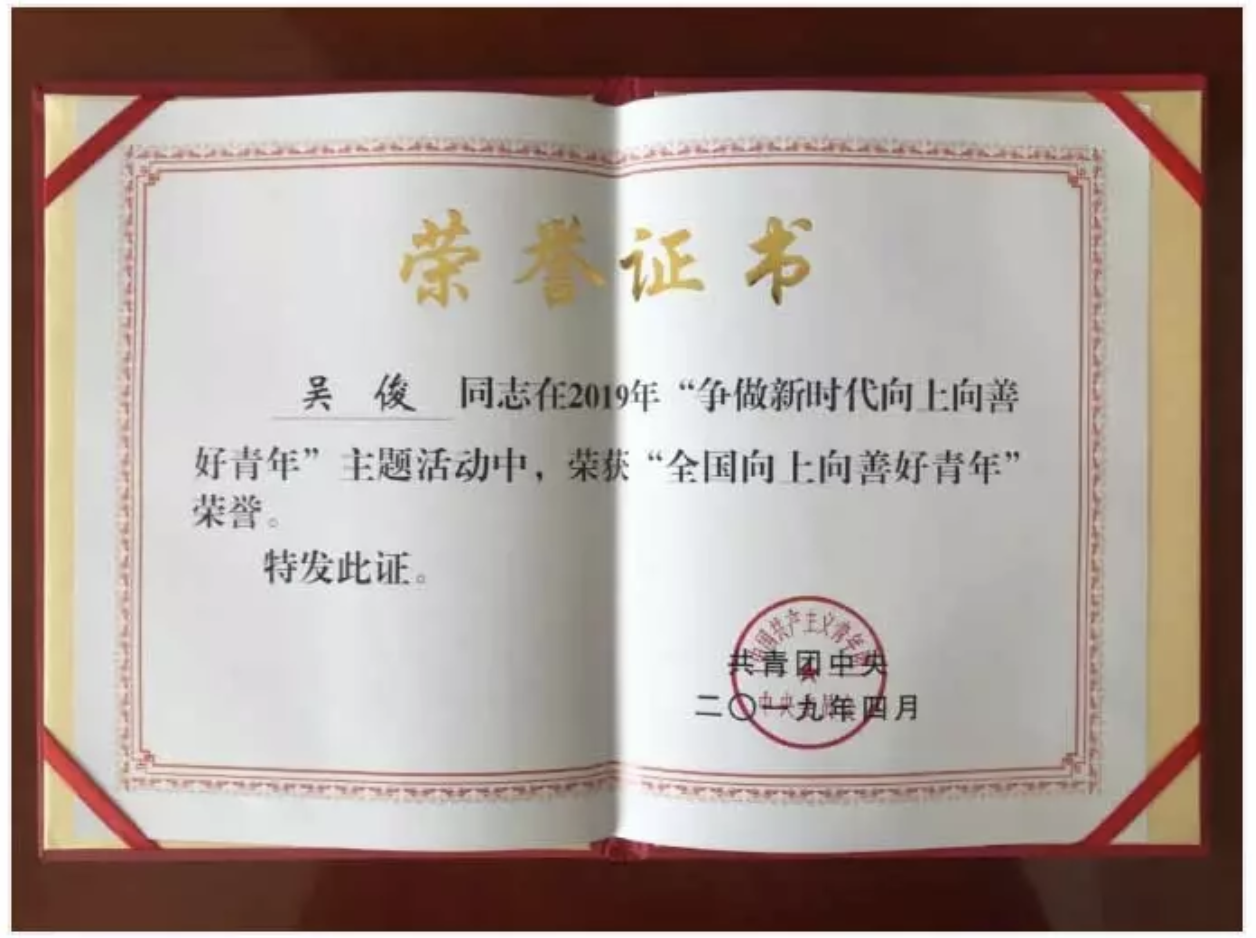 荣誉证书
吴俊 同志在2019年“争做新时代向上向善
好青年”主题活动中，荣获“全国向上向善好青年”
荣誉。
特发此证。
中国共产主义青年团
共青团中央
中央委员会
二〇一九年四月